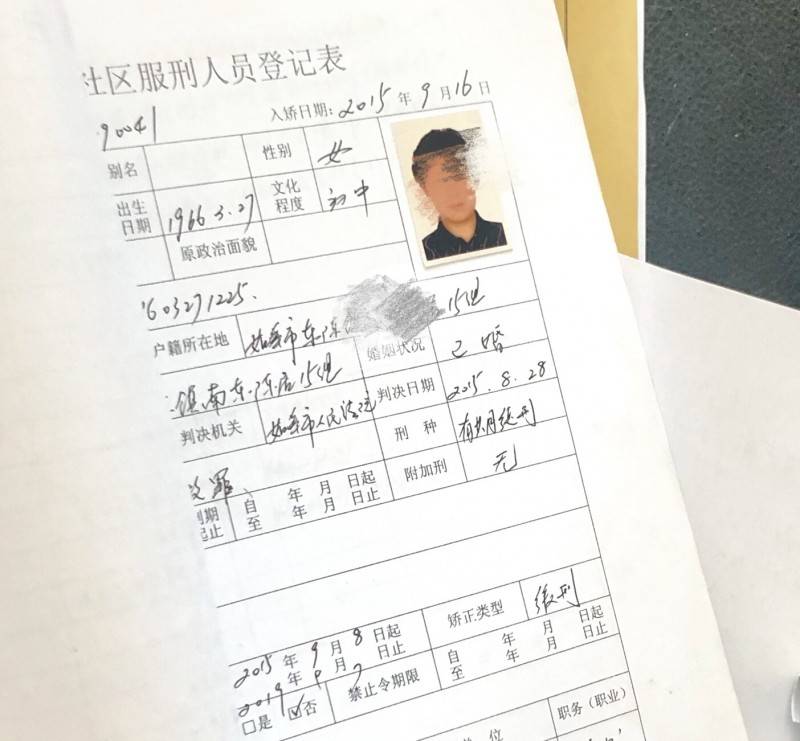 社区服刑人员登记表
90041 入矫日期：2015 年 9 月 16 日
别名 性别 女
出生日期 1966 3.27 文化程度 初中
原政治面貌
603271225.
户籍所在地 如皋市东陈 15组
镇南东陈店15组 婚姻状况 已婚
判决机关 如皋市人民法院 判决日期 2015.8.28
刑 种 有期缓刑
罪、 附加刑 无
期 自 年 月 日起
起止 至 年 月 日止
矫正类型 缓刑
2015 年 9 月 8 日起
2019 年 9 月 7 日止 禁止令期限 自 年 月 日起
至 年 月 日止
□是 ☑否
单 位 职务（职业）